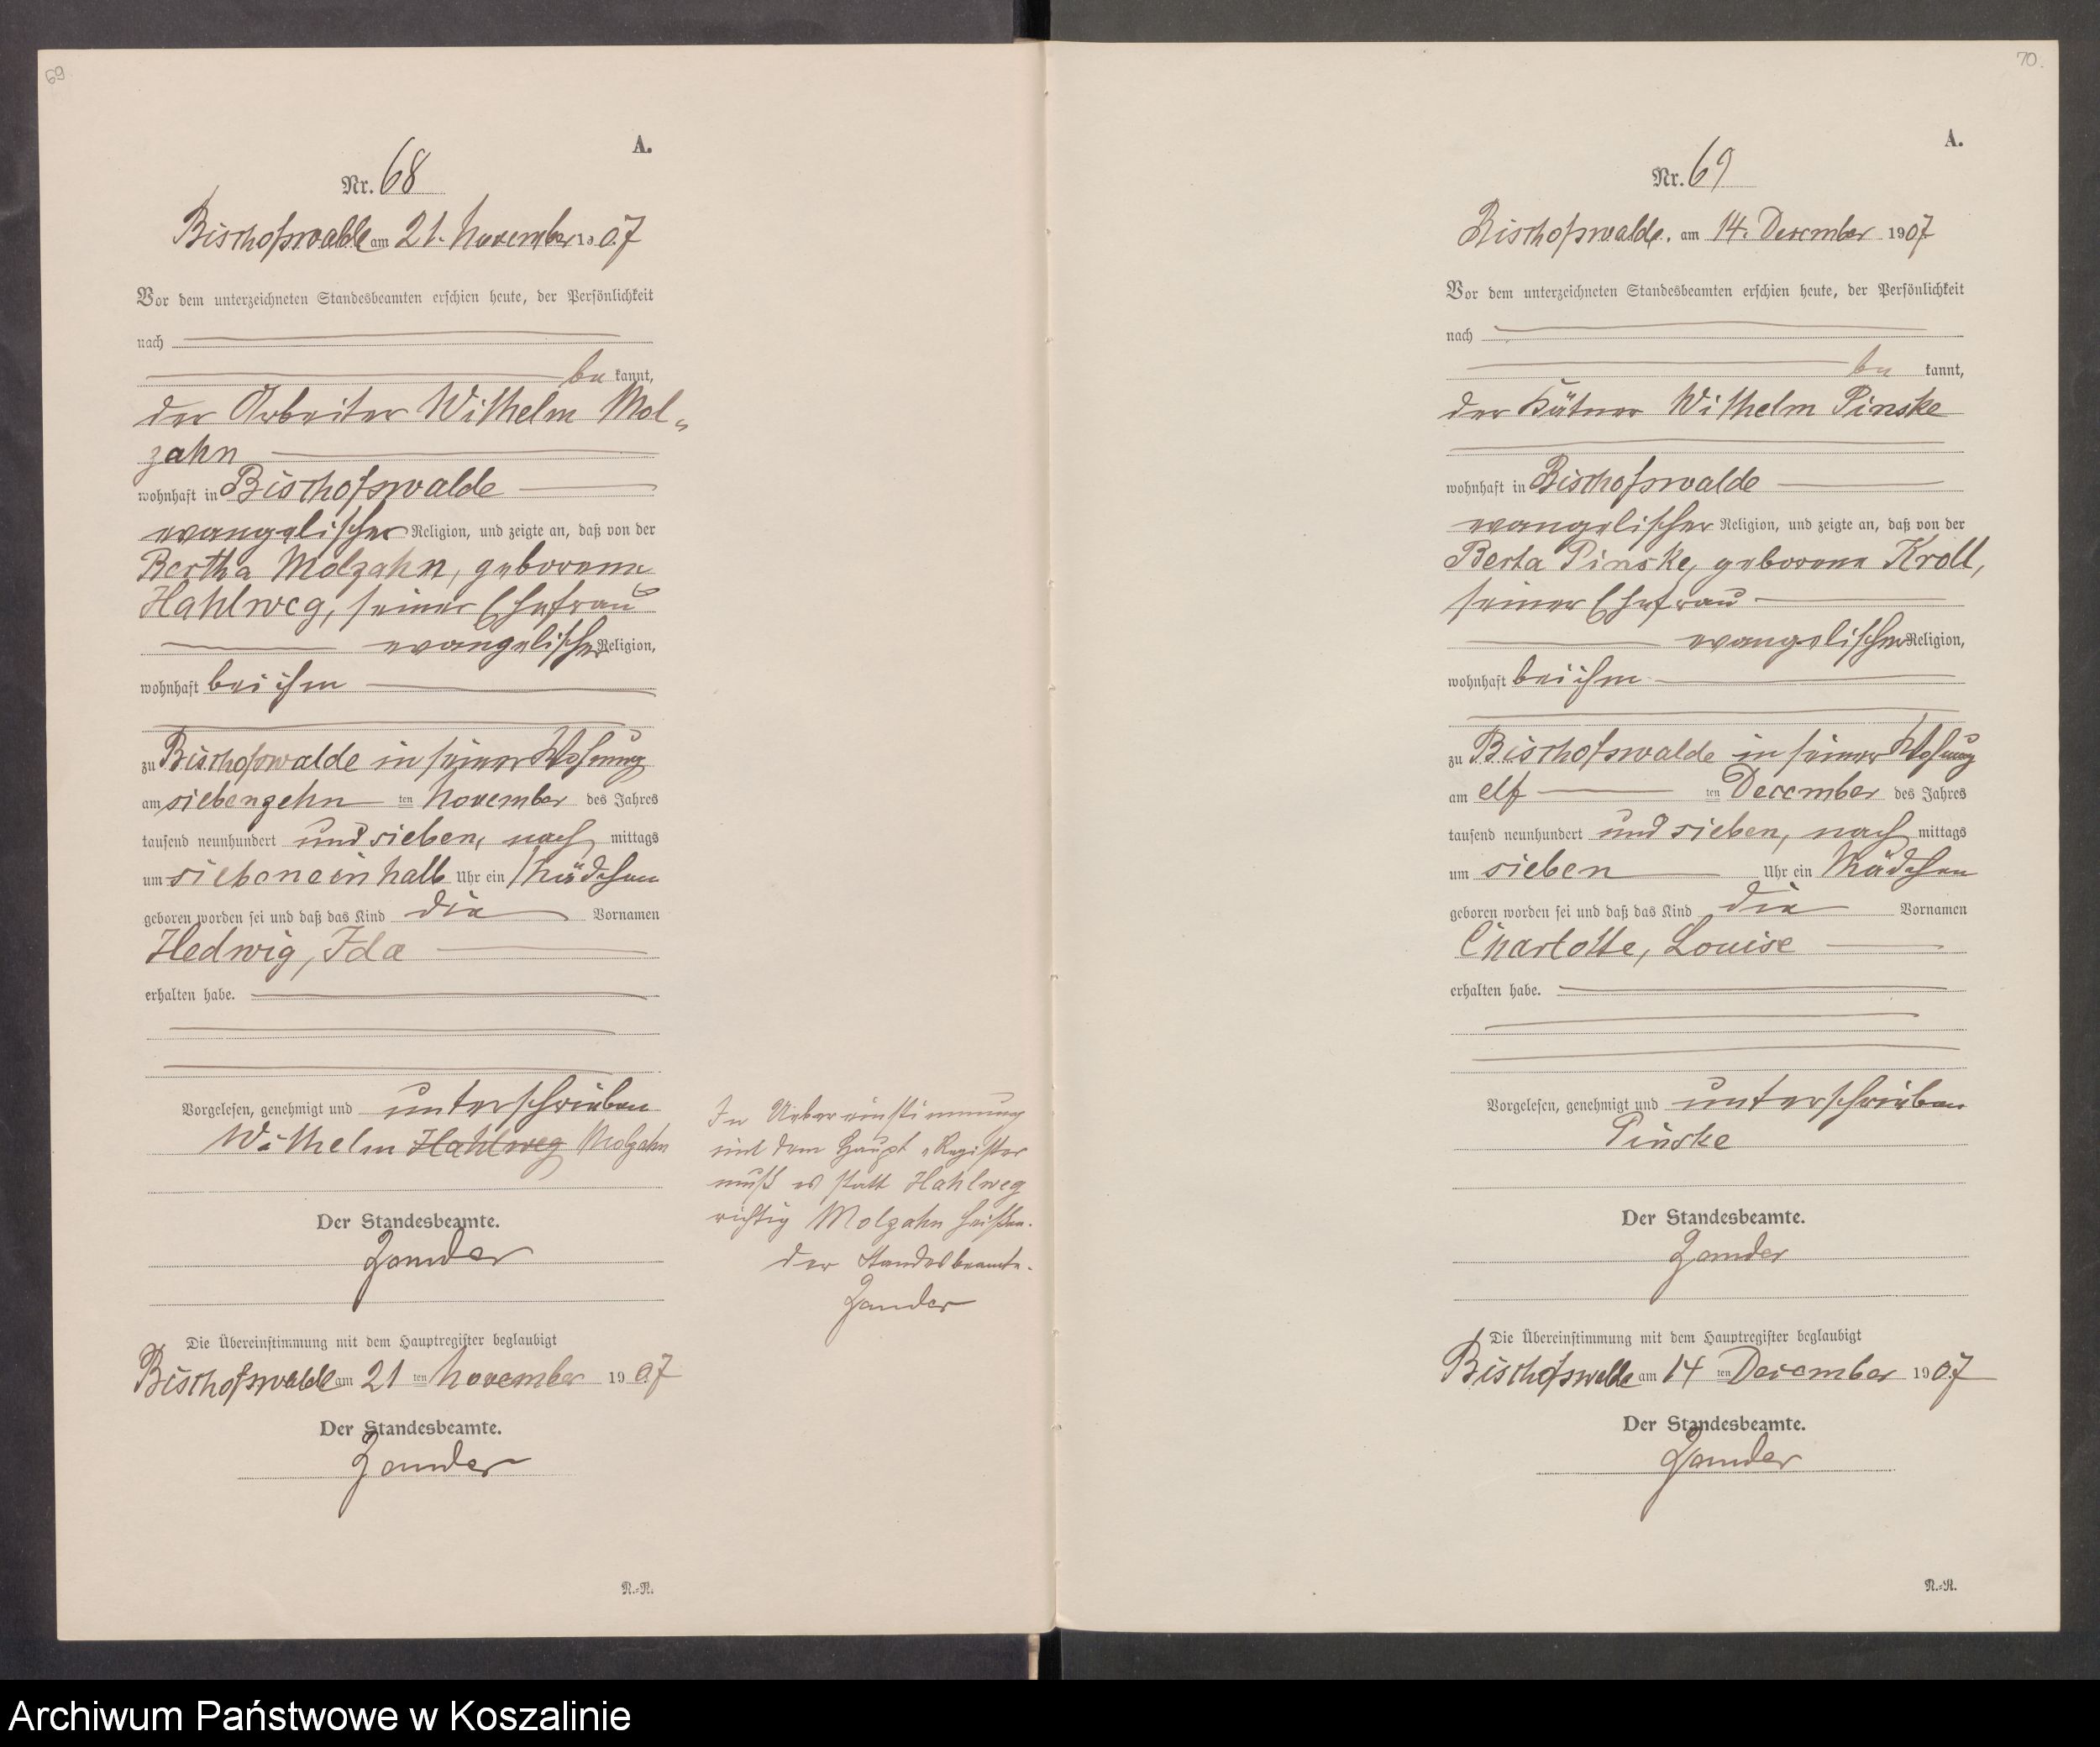 69
A.
Nr. 68
Bischofswalde am 21. November 1907
Vor dem unterzeichneten Standesbeamten erschien heute, der Persönlichkeit
nach
be kannt,
der Arbeiter Wilhelm Mol„
zahn
wohnhaft in Bischofswalde
evangelischer Religion, und zeigte an, daß von der
Bertha Molzahn, geborene
Hahlweg, seiner Ehefrau
evangelischer Religion,
wohnhaft bei ihm
zu Bischofswalde in seiner Wohnung
am siebenzehn ten November des Jahres
tausend neunhundert und sieben, nach mittags
um siebeneinhalb Uhr ein Mädchen
geboren worden sei und daß das Kind die Vornamen
Hedwig, Ida
erhalten habe.
Vorgelesen, genehmigt und unterschrieben
Wilhelm Hahlweg Molzahn
Der Standesbeamte.
Zander
Die Übereinstimmung mit dem Hauptregister beglaubigt
Bischofswalde am 21 ten November 1907
Der Standesbeamte.
Zander
N.=R.
In Uebereinstimmung
mit dem Haupt „Register
muß es statt Hahlweg
richtig Molzahn heißen.
Der Standesbeamte.
Zander
70.
A.
Nr. 69
Bischofswalde, am 14. December 1907
Vor dem unterzeichneten Standesbeamten erschien heute, der Persönlichkeit
nach
be kannt,
der Kätner Wilhelm Pinske
wohnhaft in Bischofswalde
evangelischer Religion, und zeigte an, daß von der
Berta Pinske, geborene Kroll,
seiner Ehefrau
evangelischer Religion,
wohnhaft bei ihm
zu Bischofswalde in seiner Wohnung
am elf ten December des Jahres
tausend neunhundert und sieben, nach mittags
um sieben Uhr ein Mädchen
geboren worden sei und daß das Kind die Vornamen
Charlotte, Louise
erhalten habe.
Vorgelesen, genehmigt und unterschrieben
Pinske
Der Standesbeamte.
Zander
Die Übereinstimmung mit dem Hauptregister beglaubigt
Bischofswalde am 14 ten December 1907
Der Standesbeamte.
Zander
N.=R.
Archiwum Państwowe w Koszalinie